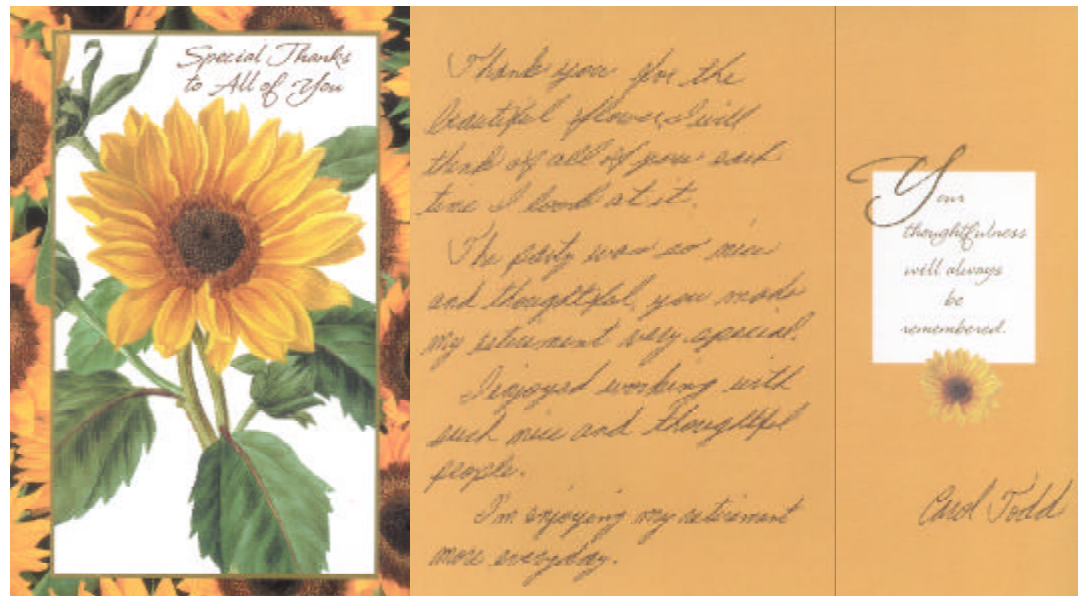 Special Thanks
to All of You
Thank you for the
beautiful flower, I will
think of all of you each
time I look at it.
The party was so nice
and thoughtful, you made
my retirement very special.
I enjoyed working with
such nice and thoughtful
people.
I'm enjoying my retirement
more everyday.
Your
thoughtfulness
will always
be
remembered.
Carol Todd